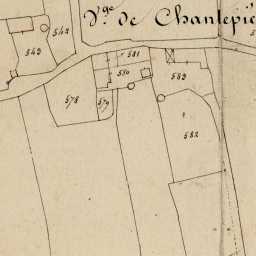 V.ge de Chantepie
542
543
581
580
583
578
579
582
5